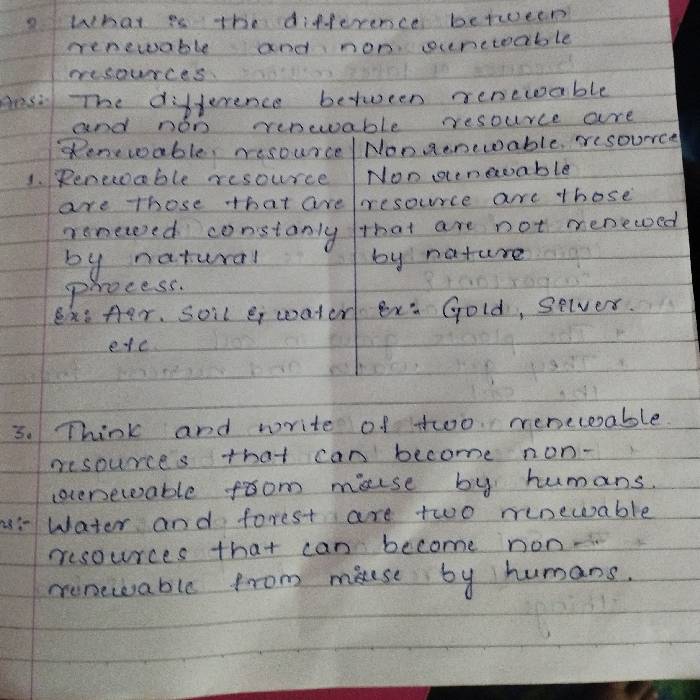 2. What is the difference between
renewable and non renewable
resources.
Ans:- The difference between renewable
and non renewable resource are
Renewable resource | Non renewable resource
1. Renewable resource | Non renewable
are those that are | resource are those
renewed constanly | that are not renewed
by natural | by nature
process.
Ex: Air. Soil & water | Ex: Gold, Silver.
etc.
3. Think and write of two renewable
resources that can become non-
renewable from misuse by humans.
Water and forest are two renewable
resources that can become non-
renewable from misuse by humans.